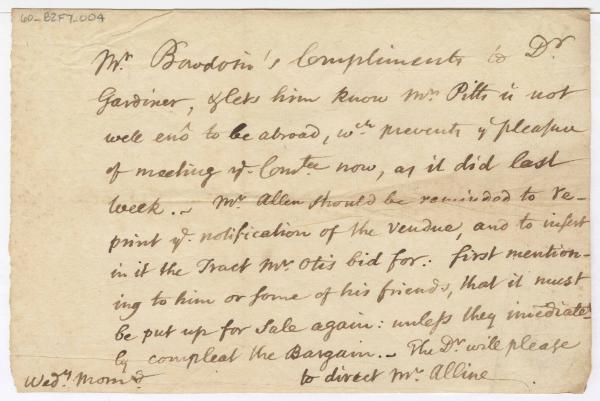 60-B2F7-004
Mr. Bowdoin's Compliments to Dr.
Gardiner, & lets him know Mr. Pitts is not
well eno' to be abroad, wch. prevents ye pleasure
of meeting ye. Comtee now, as it did last
week. - Mr. Allen should be reminded to re-
print ye. notification of the Vendue, and to insert
in it the Tract Mr. Otis bid for: first mention-
ing to him or some of his friends, that it must
be put up for Sale again: unless they imediate-
ly compleat the Bargain. - The Dr. will please
Wedy. Morng. to direct Mr. Alline